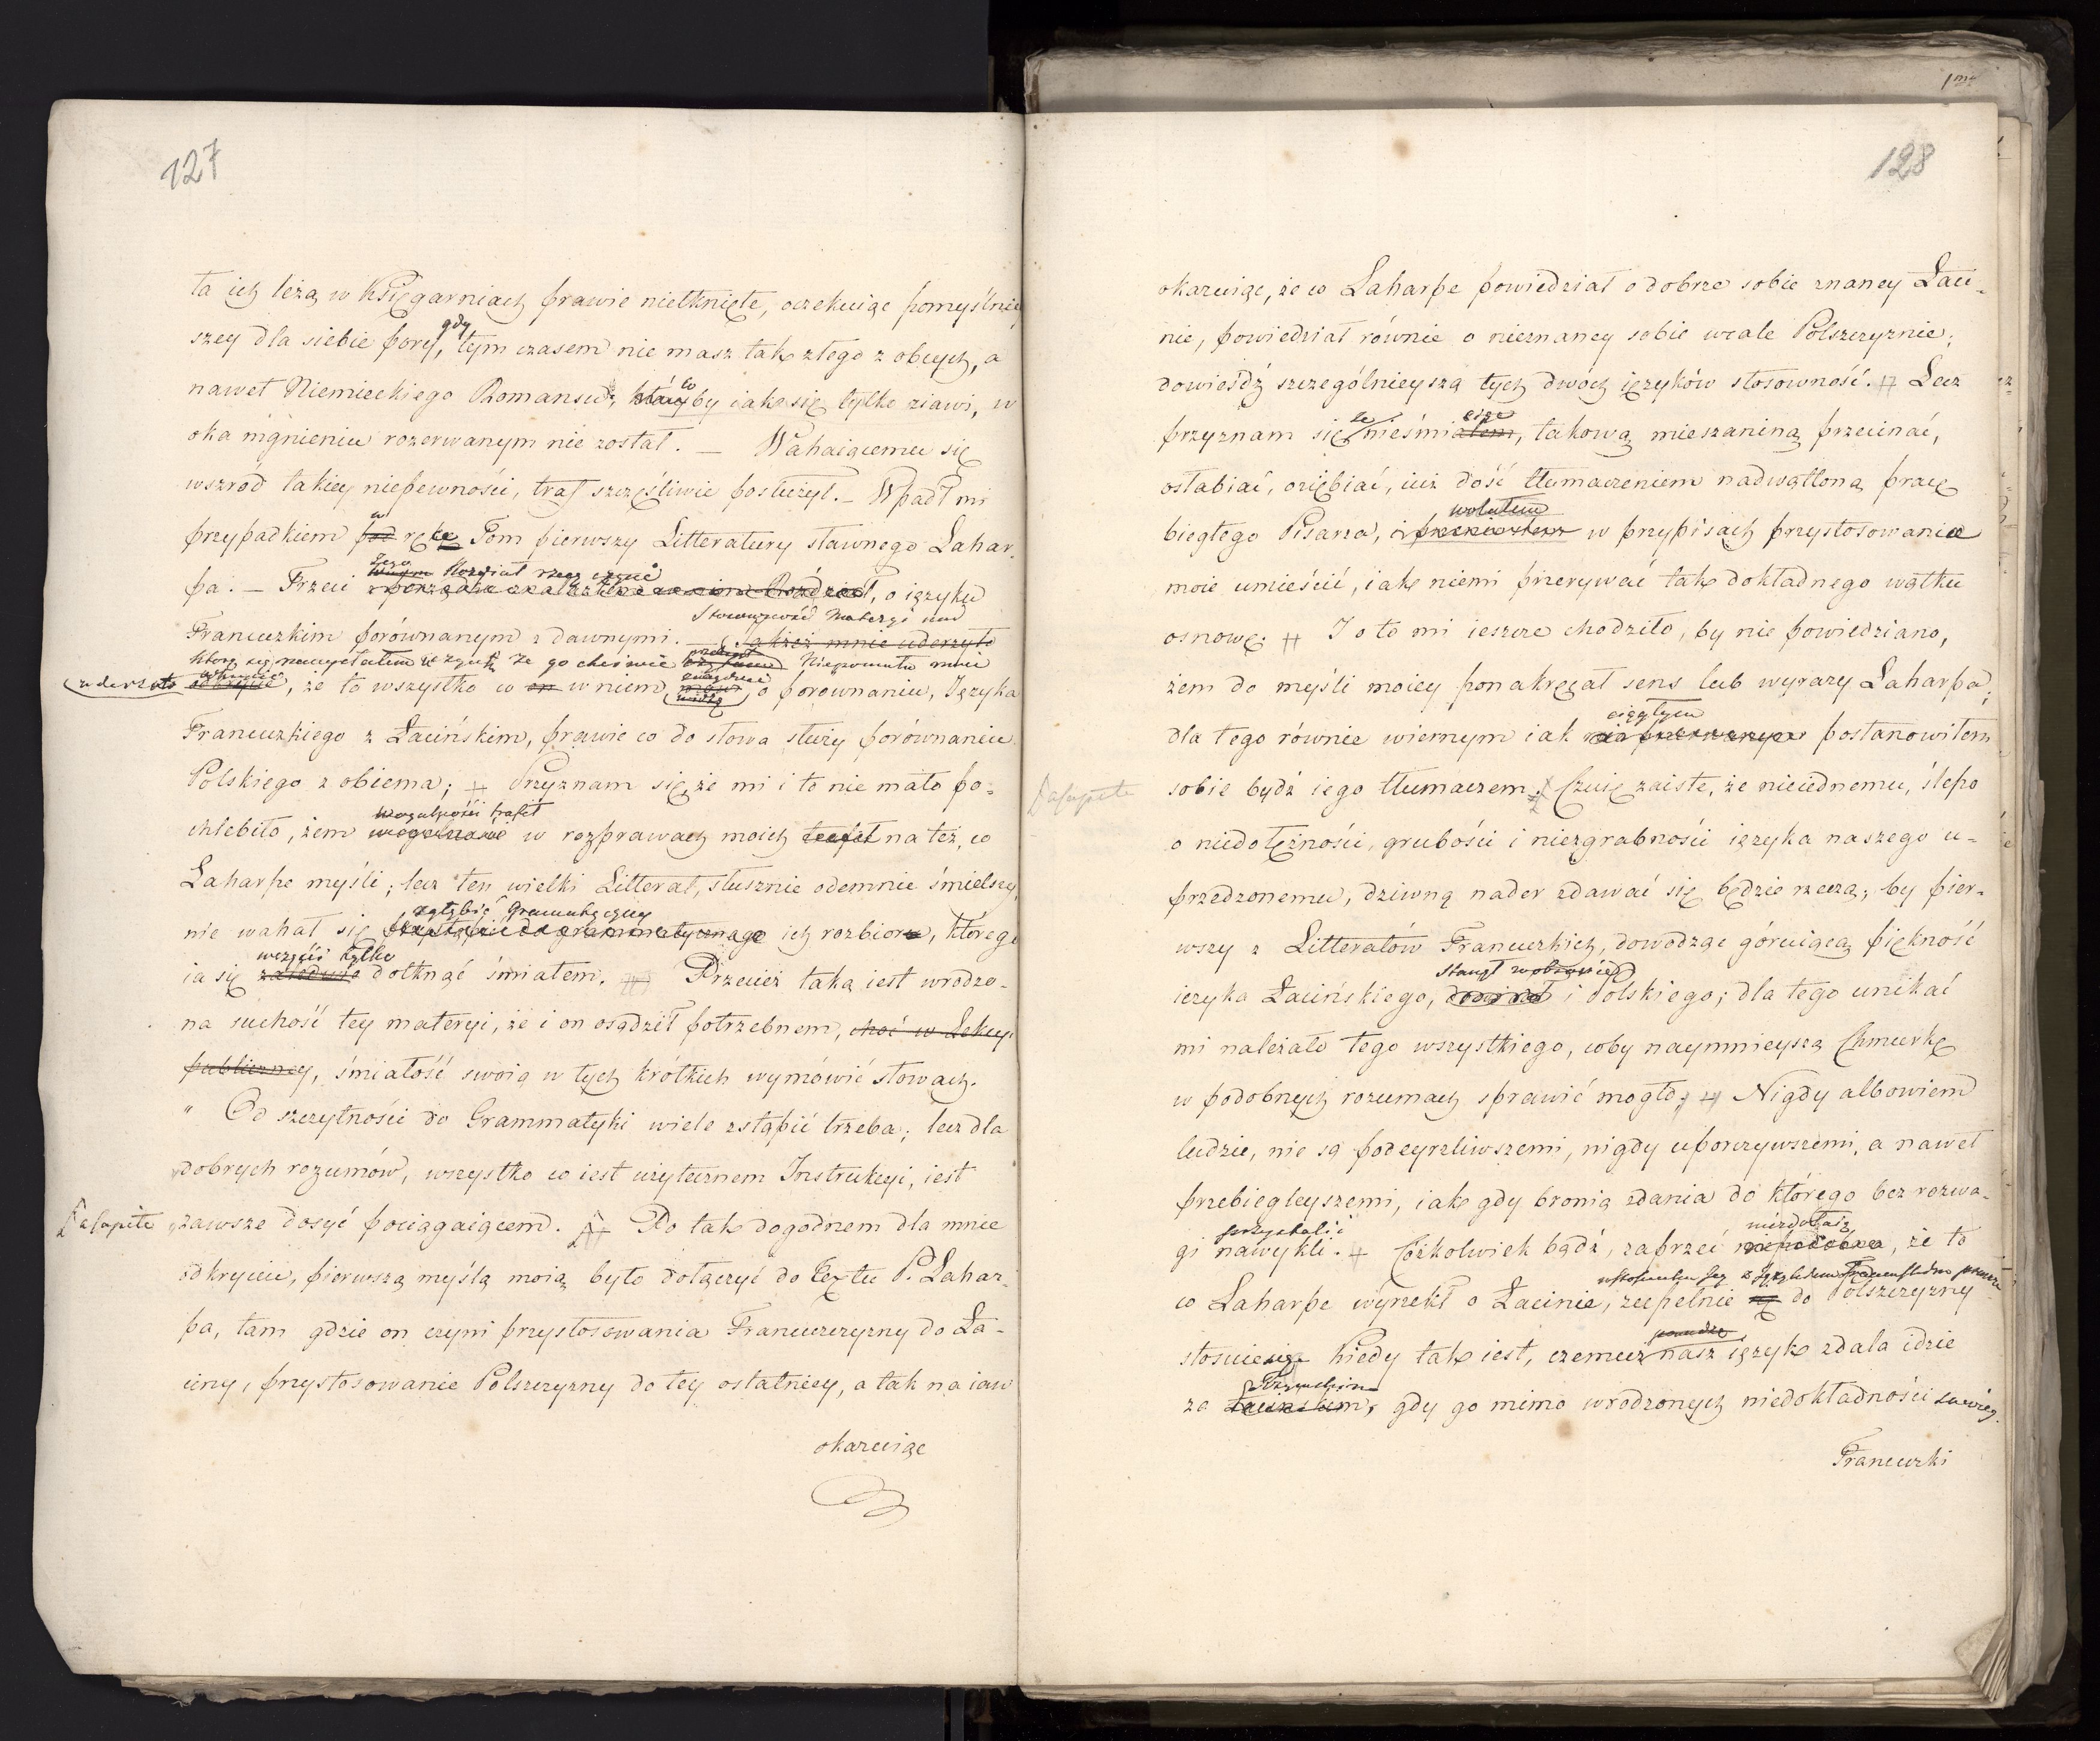 127
ta ich leżą w Księgarniach prawie nietknięte, oczekuiąc pomyślniey
gdy
szey dla siebie pory, tym czasem nie masz tak złego z obcych, a
co
nawet Niemieckiego Romansu, któryby iak się tylko ziawi, w
oka mgnieniu rozerwanym nie został. — Wahaiącemu się
wszród takiey niepewności, traf szczęśliwie posłużył. — Wpadł mi
w
przypadkiem pod rękę Tom pierwszy Litteratury sławnego Lahar
iego Rozdział
pa. — Trzeci Rozdział, o ięzyku
Stosowność Materyi
Francuzkim porównanym z dawnymi. — iakież mnie uderzyło
że go
uderzyło odkrycie, że to wszystko co on w niem mówi o porównaniu, Ięzyka
Francuzkiego z Łacińskim, prawie co do słowa służy porównaniu
Polskiego z obiema; Przyznam się, że mi i to nie mało po-
w ogulności trafił
chlebiło, żem w rozprawach moich trafił na też, co
Laharpe myśli; lecz ten wielki Litterat, słusznie odemnie śmielszy,
zgłębić Grammatyczny
nie wahał się grammatycznego ich rozbioru, którego
w części tylko
ia się zaledwie dotknąć śmiałem. Przecież taka iest wrodzo-
na suchość tey materyi, że i on osądził potrzebnem, choć w Lekcyi
publiczney, śmiałość swoią w tych krótkich wymówić słowach.
" Od szczytności do Grammatyki wiele zstąpić trzeba; lecz dla
dobrych rozumów, wszystko co iest użytecznem Instrukcyi, iest
a capite zawsze dosyć pociągaiącem. Po tak dogodnem dla mnie
odkryciu, pierwszą myślą moią było dołączyć do Textu P. Lahar-
pa, tam gdzie on czyni przystosowania Francuzczyzny do Ła-
ciny, przystosowanie Polszczyzny do tey ostatniey, a tak na iaw
okazuiąc
128
okazuiąc, że co Laharpe powiedział o dobrze sobie znaney Łaci-
nie, powiedział równie o nieznaney sobie wcale Polszczyznie;
dowieśdź szczególnieyszą tych dwóch ięzyków stosowność. Lecz
że
przyznam się nieśmiałem, takową mieszaniną przecinać,
osłabiać, oziębiać, iuż dość tłumaczeniem nadwątloną pracę
wolałem
biegłego Pisarza, i w przypisach przystosowania
moie umieścić, iak niemi przerywać tak dokładnego wątku
osnowę. I o to mi ieszcze chodziło, by nie powiedziano,
żem do myśli moiey ponakręcał sens lub wyrazy Laharpa;
ciągłym
dla tego równie wiernym iak postanowiłem
a capite sobie bydź iego tłumaczem. Czuię zaiste, że nieiednemu, ślepo
o niedołężności, grubości i niezgrabności ięzyka naszego u-
przedzonemu, dziwną nader zdawać się będzie rzeczą, by pier-
wszy z Litteratów Francuzkich, dowodząc góruiącą piękność
stanął w obronie
ięzyka Łacińskiego, i Polskiego; dla tego unikać
mi należało tego wszystkiego, coby naymnieyszą Chmurkę
w podobnych rozumach sprawić mogło; Nigdy albowiem
ludzie, nie są podeyrzliwszemi, nigdy uporczywszemi, a nawet
przebiegleyszemi, iak gdy bronią zdania do którego bez rozwa-
przystali
gi nawykli. Cóżkolwiek bądź, zaprzeć niepodobna, że to
co Laharpe wyrzekł o Łacinie, zupełnie się do Polszczyzny
stosuie. Kiedy tak iest, czemuż nasz ięzyk zdala idzie
za Łacińskim, gdy go mimo wrodzonych niedokładności
Francuzki